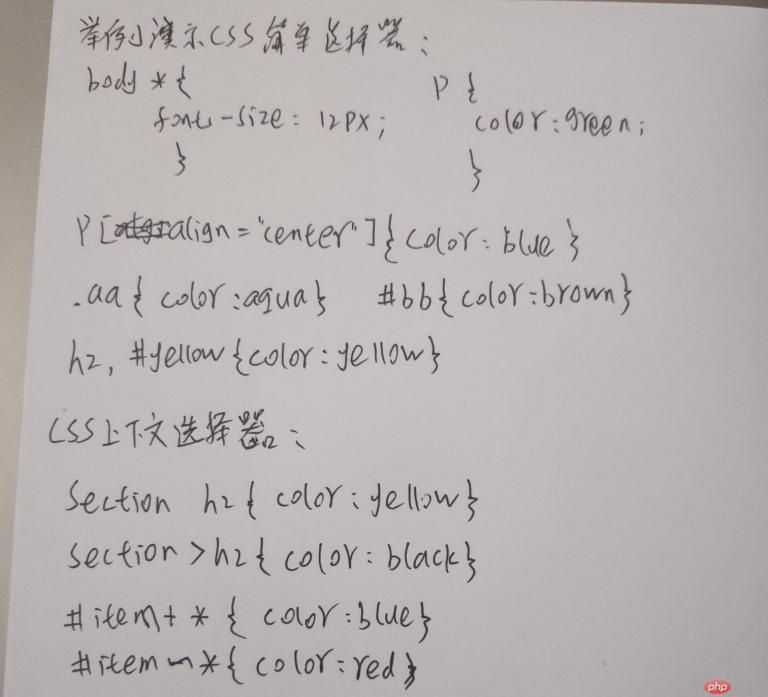 举例演示CSS简单选择器：
body *{ P {
font-size: 12px; color: green;
} }
P[align="center"]{color: blue}
.aa{ color:aqua} #bb{color:brown}
h2, #yellow{color:yellow}
CSS上下文选择器：
Section h2{ color: yellow}
section>h2{ color: black}
#item+ * { color:blue}
#item~*{ color:red}
php